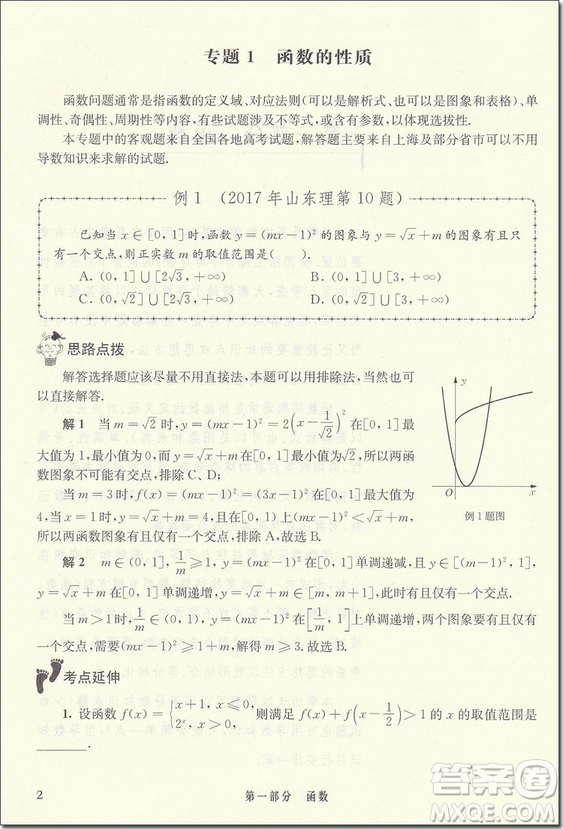 专题1 函数的性质
函数问题通常是指函数的定义域、对应法则(可以是解析式、也可以是图象和表格)、单
调性、奇偶性、周期性等内容,有些试题涉及不等式,或含有参数,以体现选拔性.
本专题中的客观题来自全国各地高考试题,解答题主要来自上海及部分省市可以不用
导数知识来求解的试题.
例1 (2017年山东理第10题)
已知当x∈[0,1]时,函数y=(mx-1)²的图象与y=√x+m的图象有且只
有一个交点,则正实数m的取值范围是( ).
A. (0,1]∪[2√3,+∞) B. (0,1]∪[3,+∞)
C. (0,√2]∪[2√3,+∞) D. (0,√2]∪[3,+∞)
思路点拨
解答选择题应该尽量不用直接法,本题可以用排除法,当然也可
以直接解答.
解1 当m=√2时,y=(mx-1)²=2(x-1/√2)²在[0,1]上最
大值为1,最小值为0,而y=√x+m在[0,1]上的最小值为√2,所以
图象不可能有交点,排除C、D;
当m=3时,f(x)=(mx-1)²=(3x-1)²在[0,1]上的最大值为
4,当x=1时,y=√x+m在[0,1]上单调递增,最大值为4,所以两个
函数图象有且仅有一个交点,排除A,故选B.
解2 m∈(0,1],1/m≥1,y=(mx-1)²在[0,1]单调递减,且∈[(m-1)²,1],y=
√x+m在[0,1]单调递增,且∈[m,m+1],此时有且仅有一个交点.
当m>1时,0<1/m<1,y=(mx-1)²在[1/m,1]上单调递增,两个图象要有且仅有一
个交点,需要(m-1)²≥1+m,解得m≥3,故选B.
y
O
x
例1题图
考点延伸
1. 设函数f(x)={x+1, x≤0, 2ˣ, x>0, 则满足f(x)+f(x-1/2)>1的x的取值范围是
________.
2 第一部分 函数
MXQE.COM